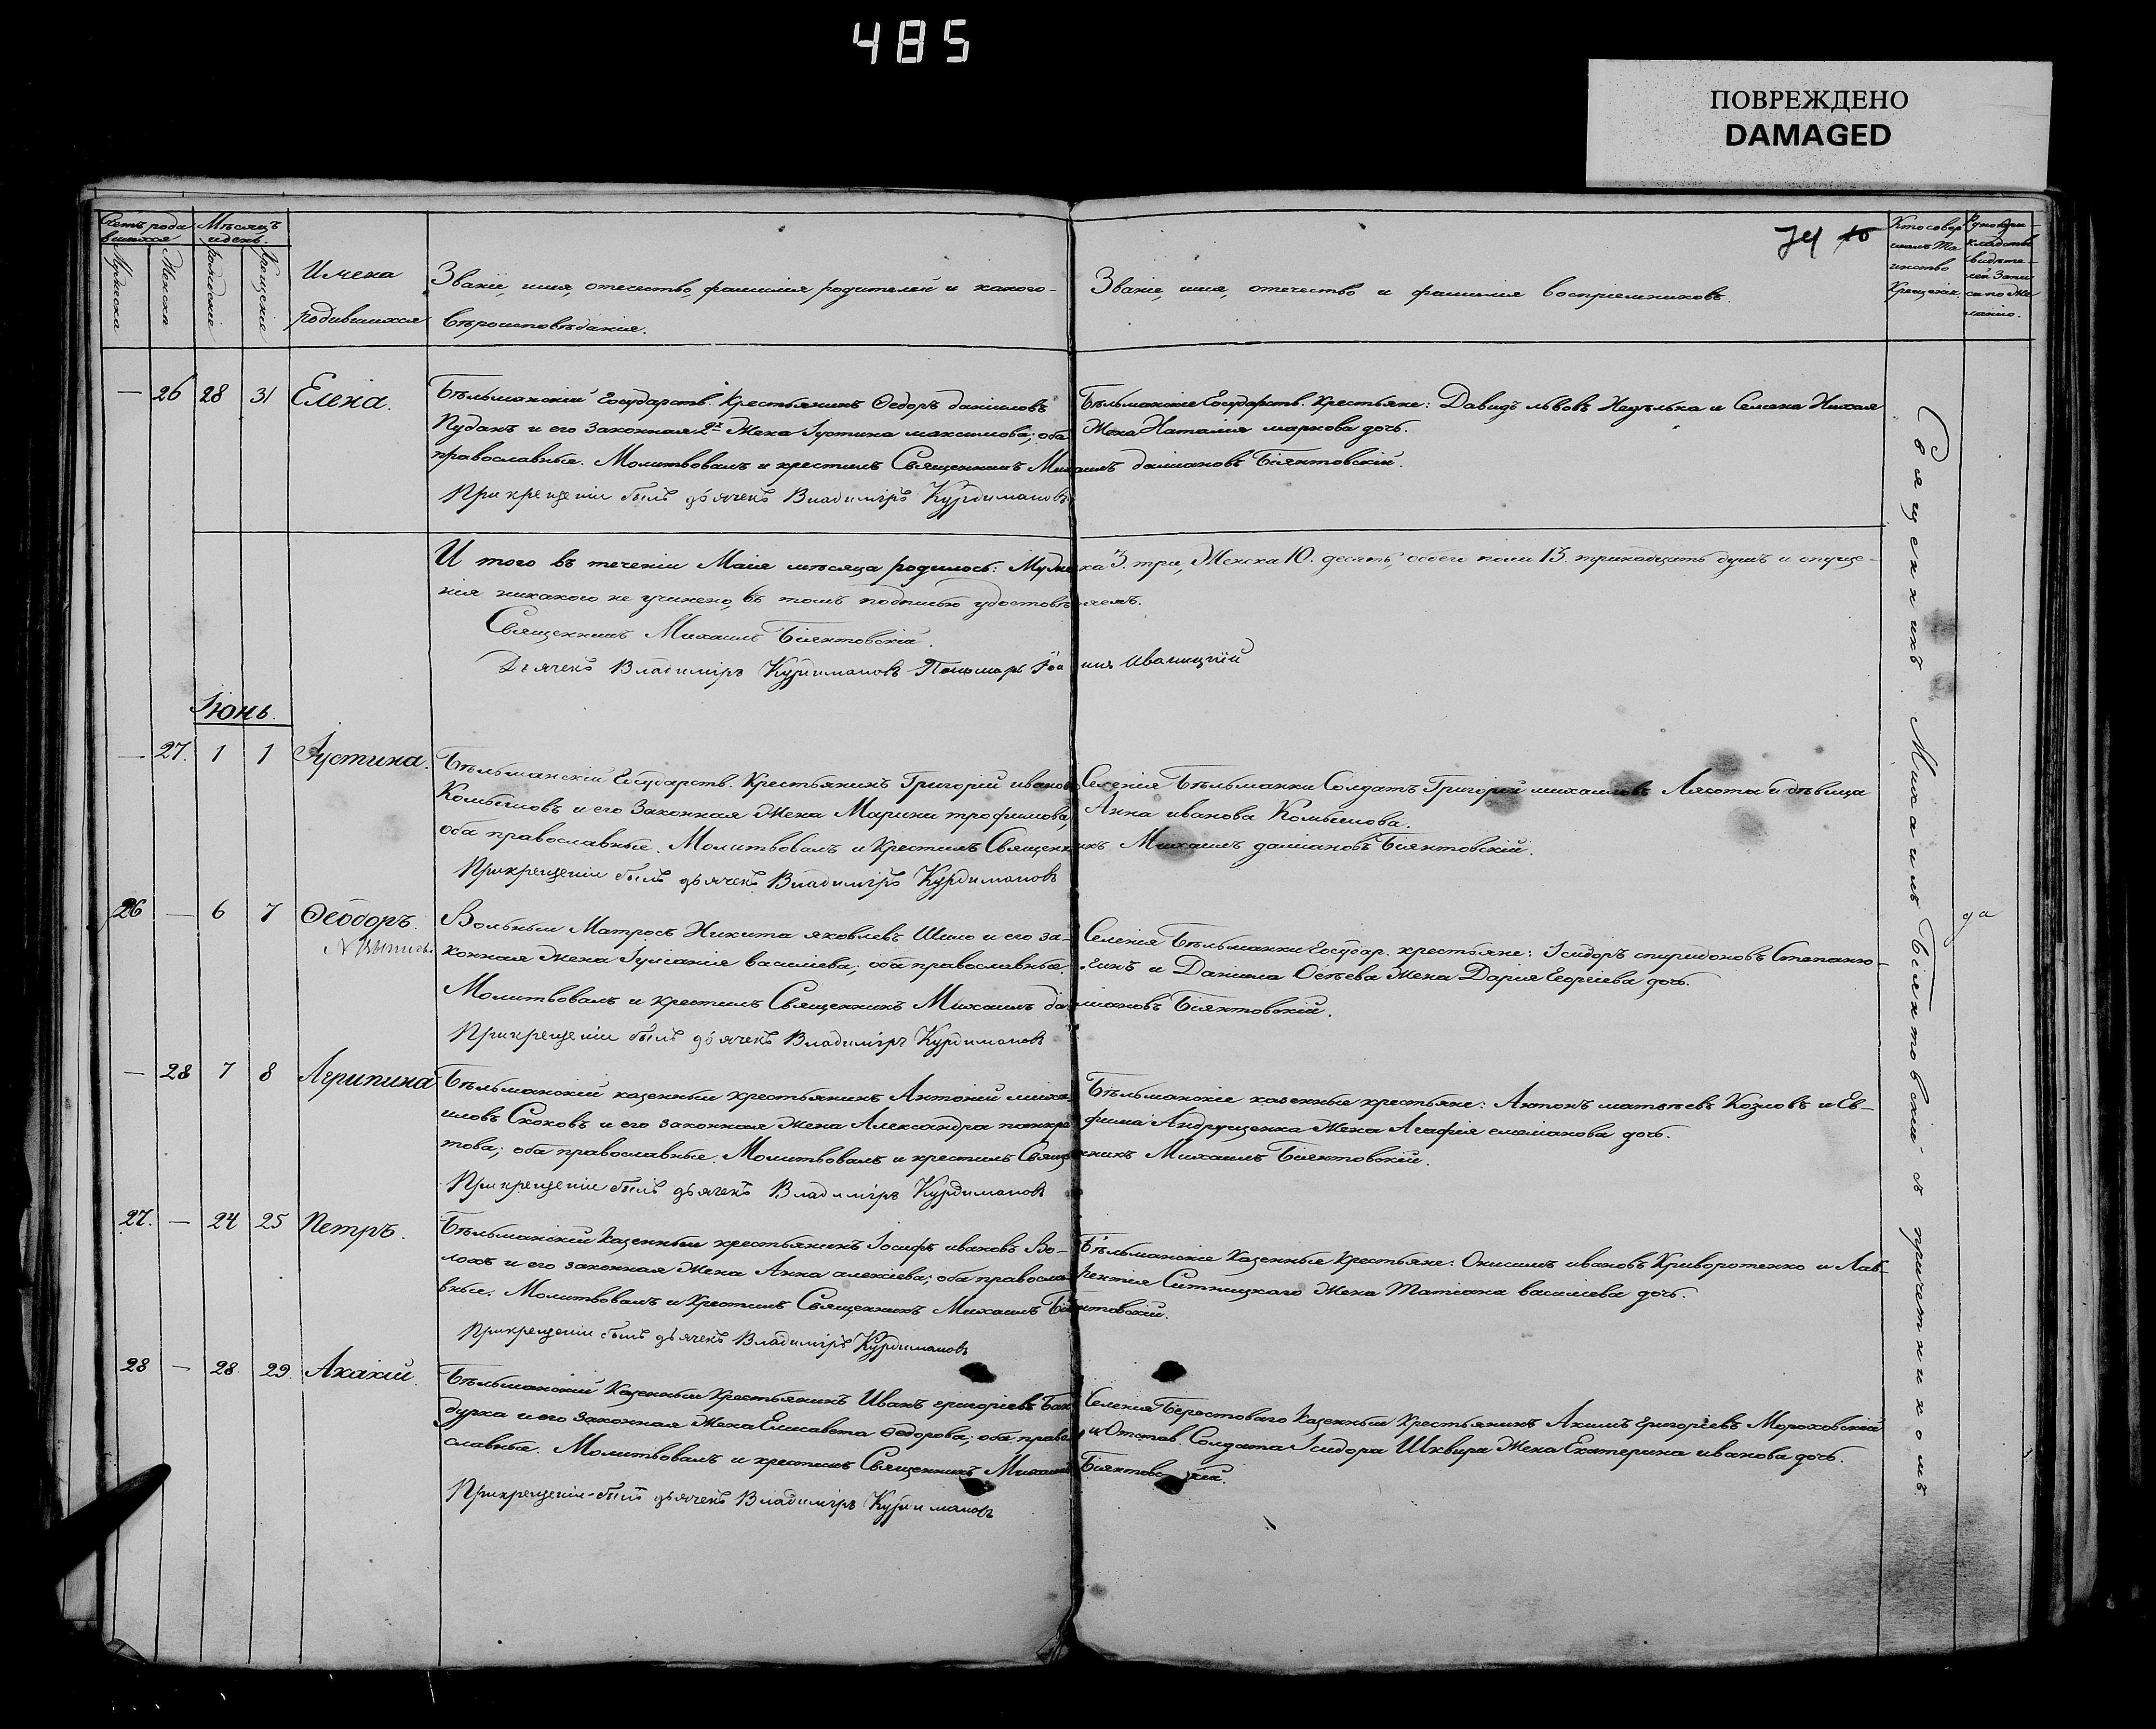 485
ПОВРЕЖДЕНО
DAMAGED
74
Счетъ роди
вшихся
Мѣсяцъ
и день.
Мужеска
Женска
Рожденія
Крещенія
Имена
родившихся
Званіе, имя, отечество, фамилія родителей и какого-
вѣроисповѣданія.
Званіе, имя, отечество и фамилія воспріемниковъ.
Кто совер
шалъ Та
инство
Крещенія.
Рукопри-
кладство
свидѣте-
лей запи
си по же
ланію.
— 26 28 31 Елена.
Бѣльманскій Государств. Крестьянинъ Ѳедоръ даніиловъ
Пуданъ и его законная 2я Жена Іустина максимова; оба
православные. Молитвовалъ и крестилъ Священникъ Михаилъ даміановъ Біянтовскій.
При крещеніи былъ дьячекъ Владиміръ Курдимановъ
Бѣльманскіе Государств. Крестьяне: Давидъ львовъ Недѣлька и Семена
Жена Наталія маркова дочь.
И того въ теченіи Маія мѣсяца родилось: Мужеска 3. три, Женска 10. десять, обоего пола 13. тринадцать душъ и опуще-
нія никакого не учинено, въ томъ подписью удостовѣряемъ.
Священникъ Михаилъ Біянтовскій.
Дьячекъ Владиміръ Курдимановъ Пономарь Іоаннъ Иваницкій
Іюнь.
— 27. 1 1 Іустина.
Бѣльманскій Государств. Крестьянинъ Григорій ивановъ
Комышовъ и его Законная Жена Марина трофимова,
оба православные. Молитвовалъ и Крестилъ Священникъ Михаилъ даміановъ Біянтовскій.
При крещеніи былъ дьячекъ Владиміръ Курдимановъ
Селенія Бѣльманки Солдатъ Григорій михаиловъ Лясота и дѣвица
Анна иванова Комышова.
26 — 6 7 Ѳеодоръ.
Вольный Матросъ Никита яковлевъ Шило и его за-
конная жена Іуліанія василіева; оба православные.
Молитвовалъ и крестилъ Священникъ Михаилъ даміановъ Біянтовскій.
При крещеніи былъ дьячекъ Владиміръ Курдимановъ
Селенія Бѣльманки Государ. крестьяне: Ісидоръ спиридоновъ Степаню-
гинъ и Даніила Осѣева Жена Дарія Георгіева дочь.
да
— 28 7 8 Агрипина
Бѣльманскій казенный крестьянинъ Антоній миха-
иловъ Скоковъ и его законная жена Александра панкра
това; оба православные. Молитвовалъ и крестилъ Священникъ Михаилъ Біянтовскій.
При крещеніи былъ дьячекъ Владиміръ Курдимановъ
Бѣльманскіе казенные крестьяне: Антонъ матвѣевъ Козловъ и Ев-
фима Андрущенка Жена Агафія емеліанова дочь.
27. — 24 25 Петръ.
Бѣльманскій Казенный крестьянинъ Іосифъ ивановъ Во-
лохъ и его законная Жена Анна алексіева; оба правосла
вные. Молитвовалъ и Крестилъ Священникъ Михаилъ Біянтовскій.
При крещеніи былъ дьячекъ Владиміръ Курдимановъ
Бѣльманскіе Казенные Крестьяне: Онисимъ ивановъ Криворотенко и Лав-
рентія Ситницкаго Жена Татіана василіева дочь.
28 — 28. 29. Акакій.
Бѣльманскій Казенный Крестьянинъ Иванъ григоріевъ Бан
дурка и его Законная Жена Елисавета ѳедорова; оба право
славные. Молитвовалъ и крестилъ Священникъ Михаилъ Біянтовскій.
При крещеніи былъ дьячекъ Владиміръ Курдимановъ
Селенія Берестоваго Казенный Крестьянинъ Акимъ григоріевъ Мороховскій
и Отстав. Солдата Ісидора Шквира Жена Екатерина иванова дочь.
Священникъ Михаилъ Біянтовскій съ причетникомъ